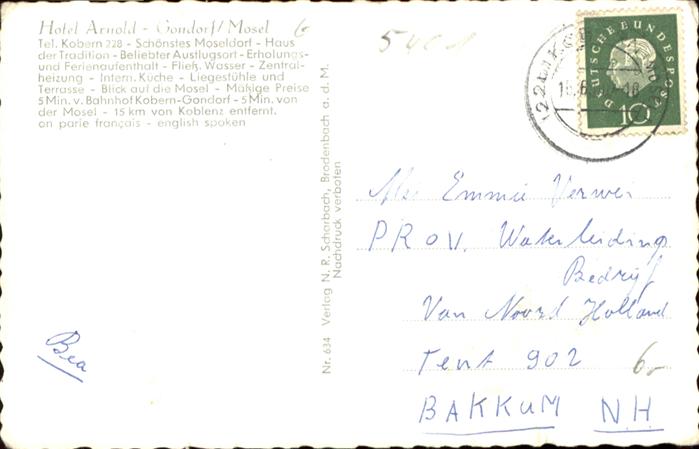 Hotel Arnold - Gondorf/Mosel
Tel. Kobern 228 - Schönstes Moseldorf - Haus
der Tradition - Beliebter Ausflugsort - Erholungs-
und Ferienaufenthalt - Fließ. Wasser - Zentral-
heizung - Intern. Küche - Liegestühle und
Terrasse - Blick auf die Mosel - Mäßige Preise
5 Min. v. Bahnhof Kobern-Gondorf - 5 Min. von
der Mosel - 15 km von Koblenz entfernt.
on parle français - english spoken
Bea
Nr. 634 Verlag N. R. Scharbach, Brodenbach a. d. M.
Nachdruck verboten
DEUTSCHE BUNDESPOST
10
Emmie Verwei
PROV. Waterleiding
Bedrijf
Van Noord Holland
Tent 902
BAKKUM N.H.